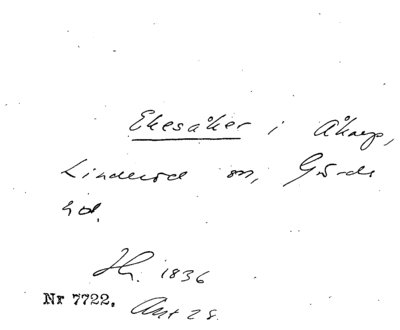 Ekesåker i Åkarp,
Linderöd sn, Gärds
hd.
Hf. 1836
Nr 7722. Akt 28.